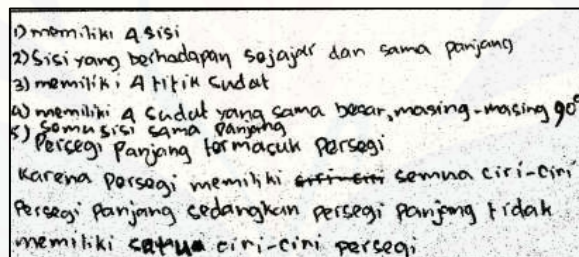 1) memiliki 4 sisi
2) Sisi yang berhadapan sejajar dan sama panjang
3) memiliki 4 titik sudat
4) memiliki 4 sudut yang sama besar, masing-masing 90°
5) Semua sisi sama panjang
Persegi panjang termasuk persegi
karena persegi memiliki semua ciri-ciri
persegi panjang sedangkan persegi panjang tidak
memiliki satu ciri-ciri persegi